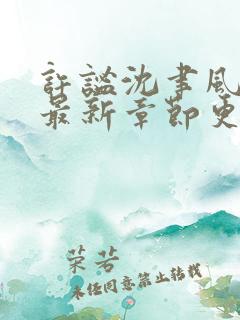 許謐沈書風
最新章節更
荣芳
未经同意禁止转载